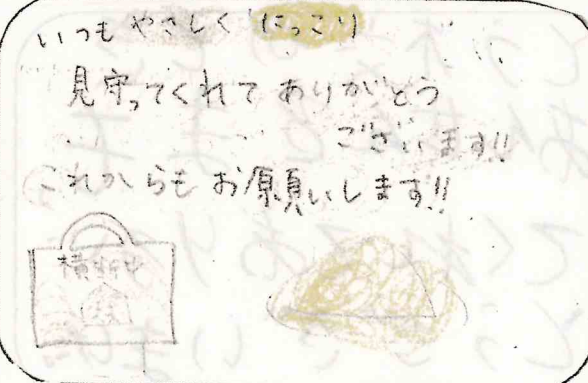 いつもやさしくにっこり
見守ってくれてありがとう
ございます!!
これからもお願いします!!